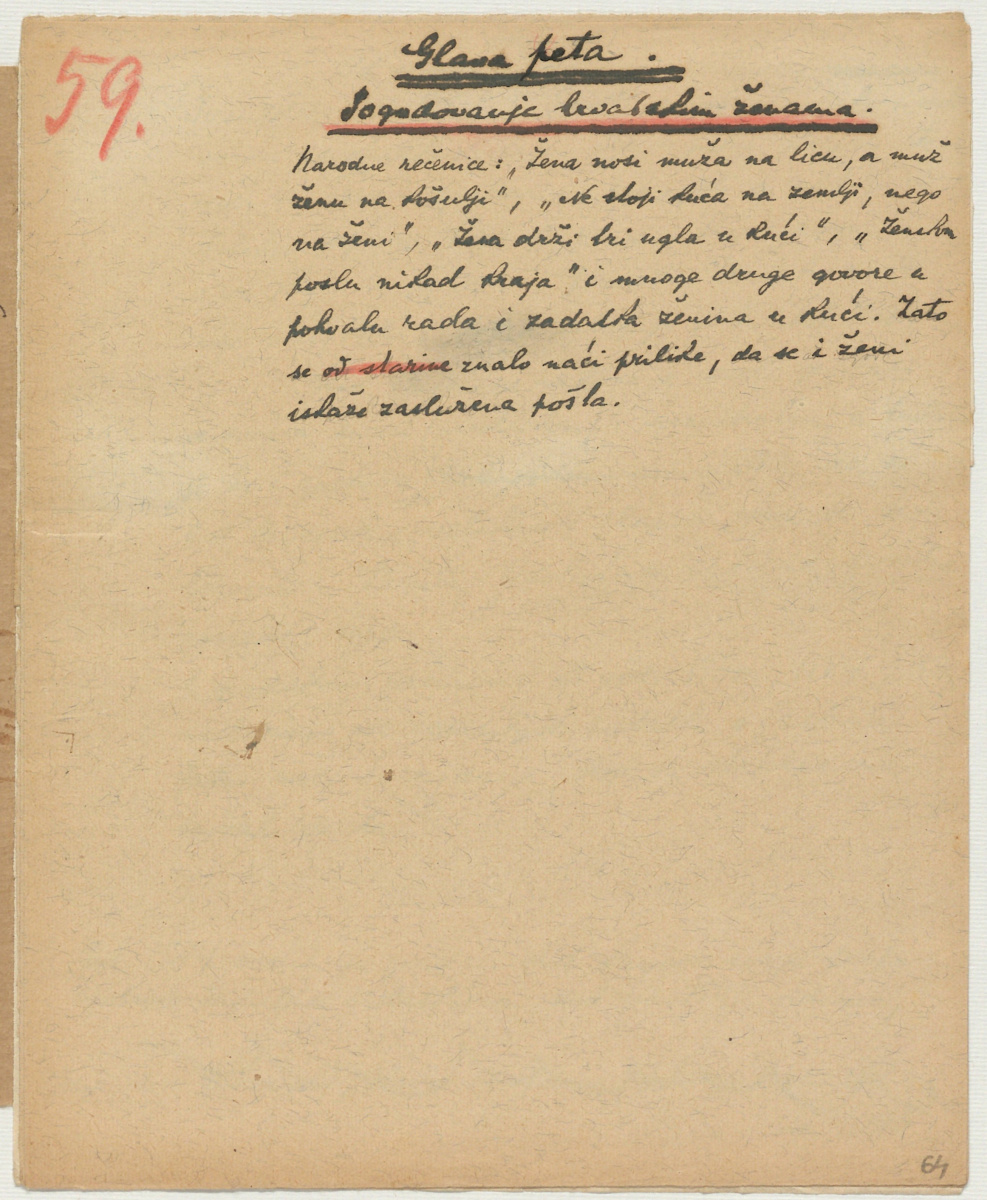 59.
Glava peta.
Pogodovanje hrvatskim ženama.
Narodne rečenice: „Žena nosi muža na licu, a muž
ženu na košulji", „Ne stoji kuća na zemlji, nego
na ženi", „Žena drži tri ugla u kući", „Ženskom
poslu nikad kraja" i mnoge druge govore u
pohvalu rada i zadatka ženina u kući. Zato
se od starine znalo naći prilike, da se i ženi
iskaže zaslužena pošta.
64